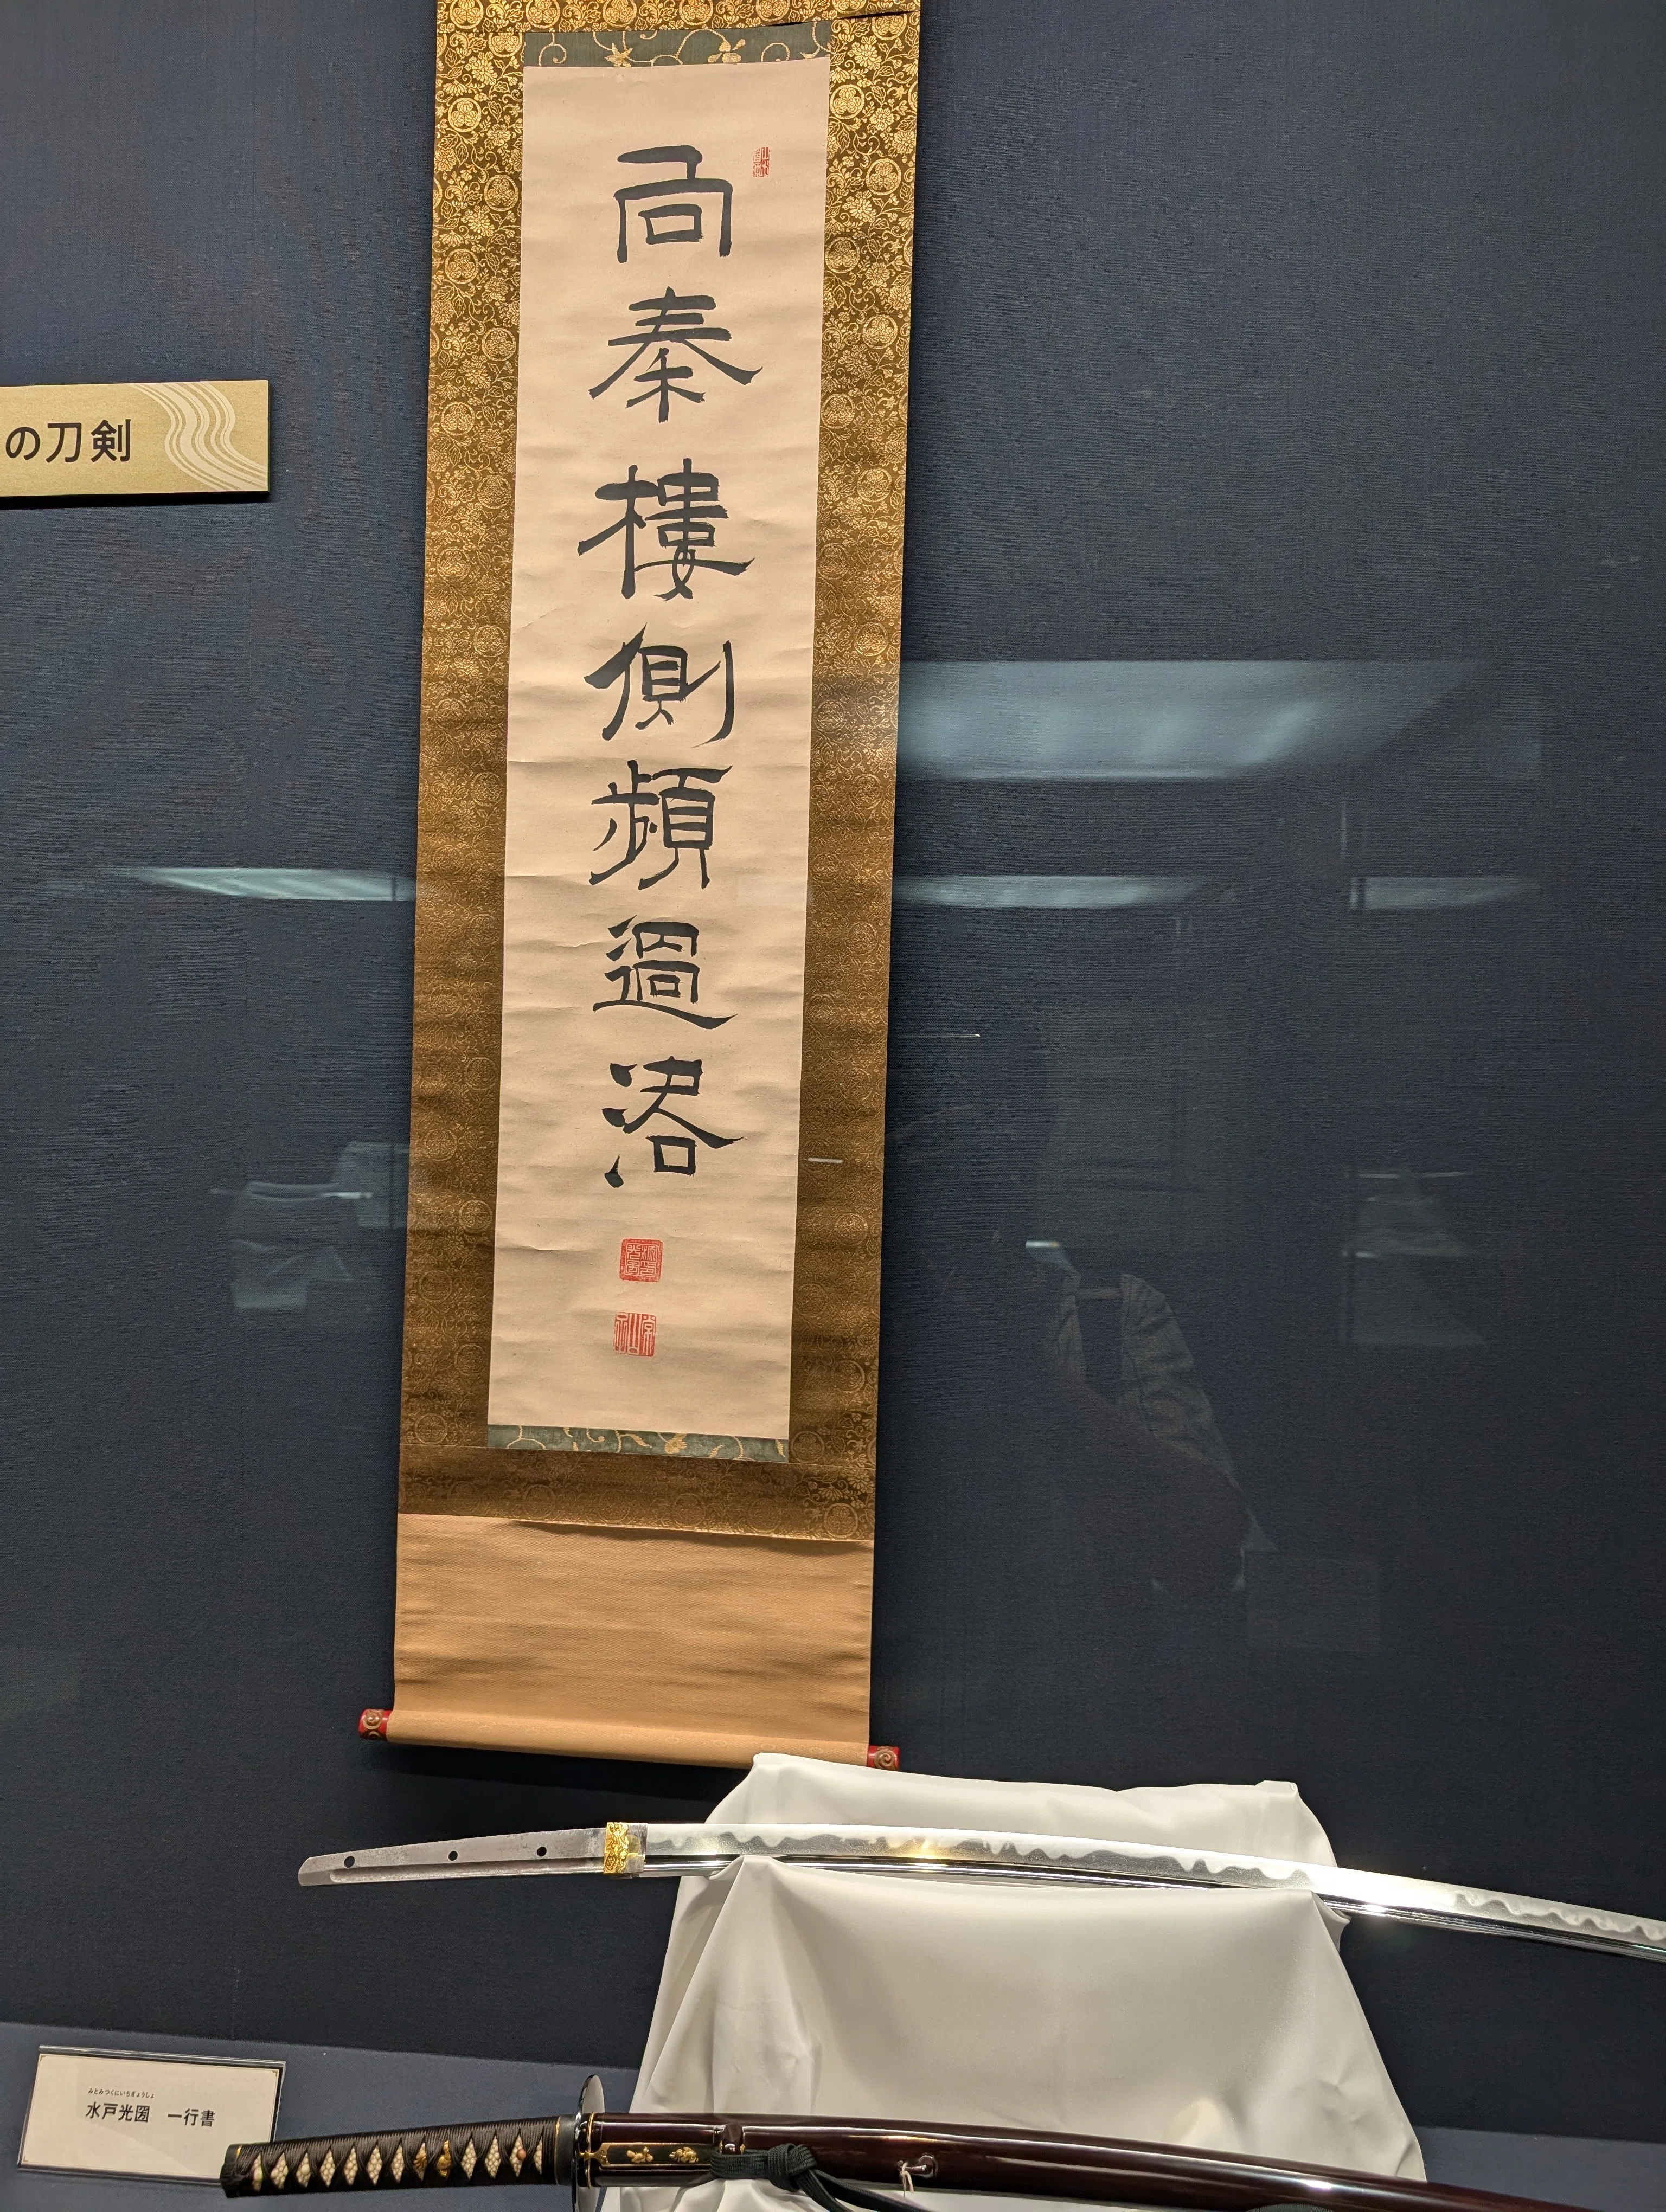 の刀剣
向秦樓側頻過洛
みとみつくにいちぎょうしょ
水戸光圀　一行書